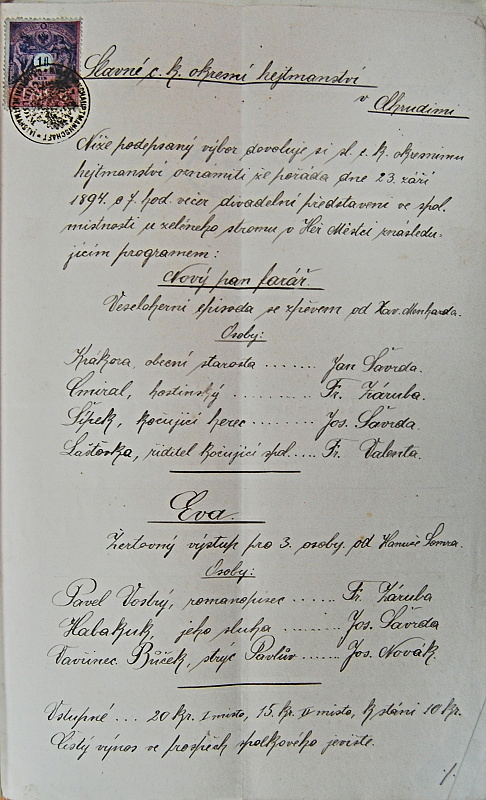 Slavné c. k. okresní hejtmanství
v Chrudimi
Níže podepsaný výbor dovoluje si sl. c. k. okresnímu
hejtmanství oznámiti že pořádá dne 23. září
1894 o 7. hod. večer divadelní představení ve spol.
místnosti u zeleného stromu v Heř. Městci s následu-
jícím programem:
Nový pan farář.
Veseloherní episoda se zpěvem od Xav.
Osoby:
Krákora, obecní starosta ....... Jan Šavrda.
Cmiral, hostinský .......... Fr. Záruba.
Šípek, kočující herec ........ Jos. Šavrda.
Laštovka, řiditel kočující spol..... Fr. Valenta.
Eva.
Žertovný výstup pro 3. osoby. od Hanuše
Osoby:
Pavel Vostrý, romanopisec ...... Fr. Záruba
Habakuk, jeho sluha ...... Jos. Šavrda
Vavřinec Bůček, strýc Pavlův ..... Jos. Novák.
Vstupné ... 20 kr. I místo, 15. kr. II místo, k stání 10 kr.
Čistý výnos ve prospěch spolkového jeviště.